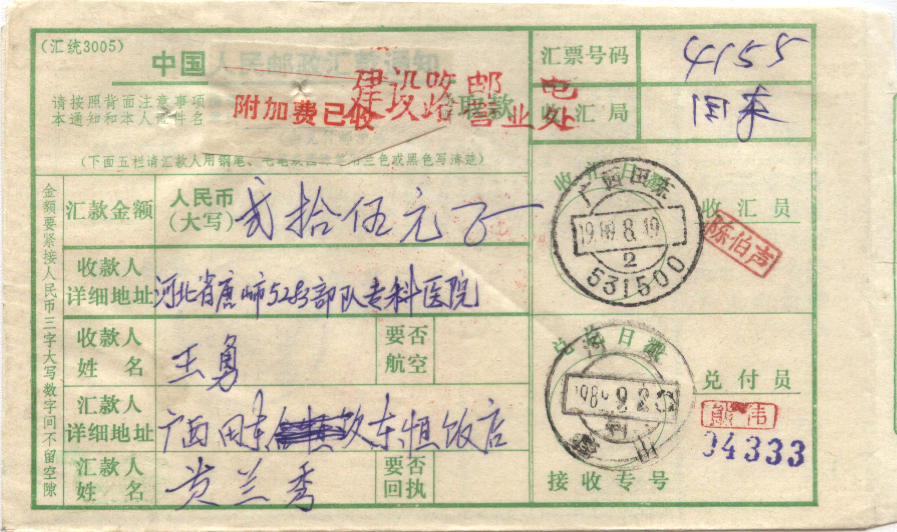 (汇统3005)
中国人民邮政汇款通知
建设路邮电
营业处
附加费已收
请按照背面注意事项
取款
本通知和本人证件名
(下面五栏请汇款人用钢笔、毛笔
三色或黑色写清楚)
汇票号码 4155
收汇局 田东
金额要紧接人民币三字大写数字间不留空隙
汇款金额 人民币(大写) 贰拾伍元
收款人详细地址 河北省唐山市5283部队专科医院
收款人姓名 王勇
要否航空
汇款人详细地址 广西田东 东恒饭店
汇款人姓名 黄兰秀
要否回执
收汇日戳
广西田东
1989.8.19
2
531500
收汇员
陈伯声
兑兑日戳
兑付员
熊伟
04333
接收专号